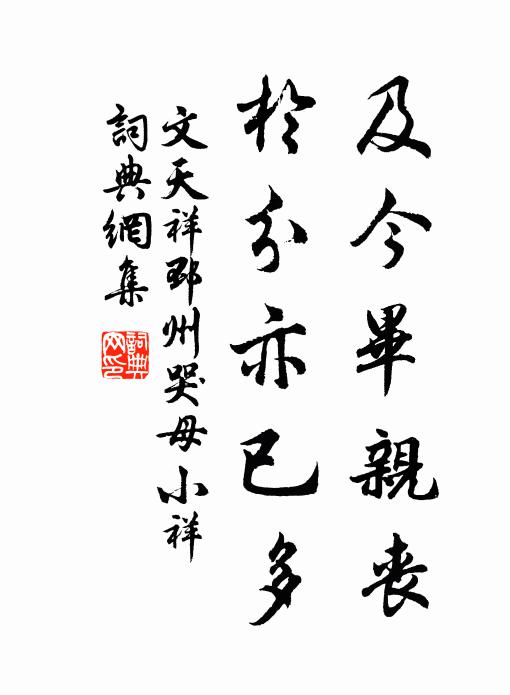 及今畢親喪
於分亦已多
文天祥邳州哭母小祥
詞典網集
詞典網印